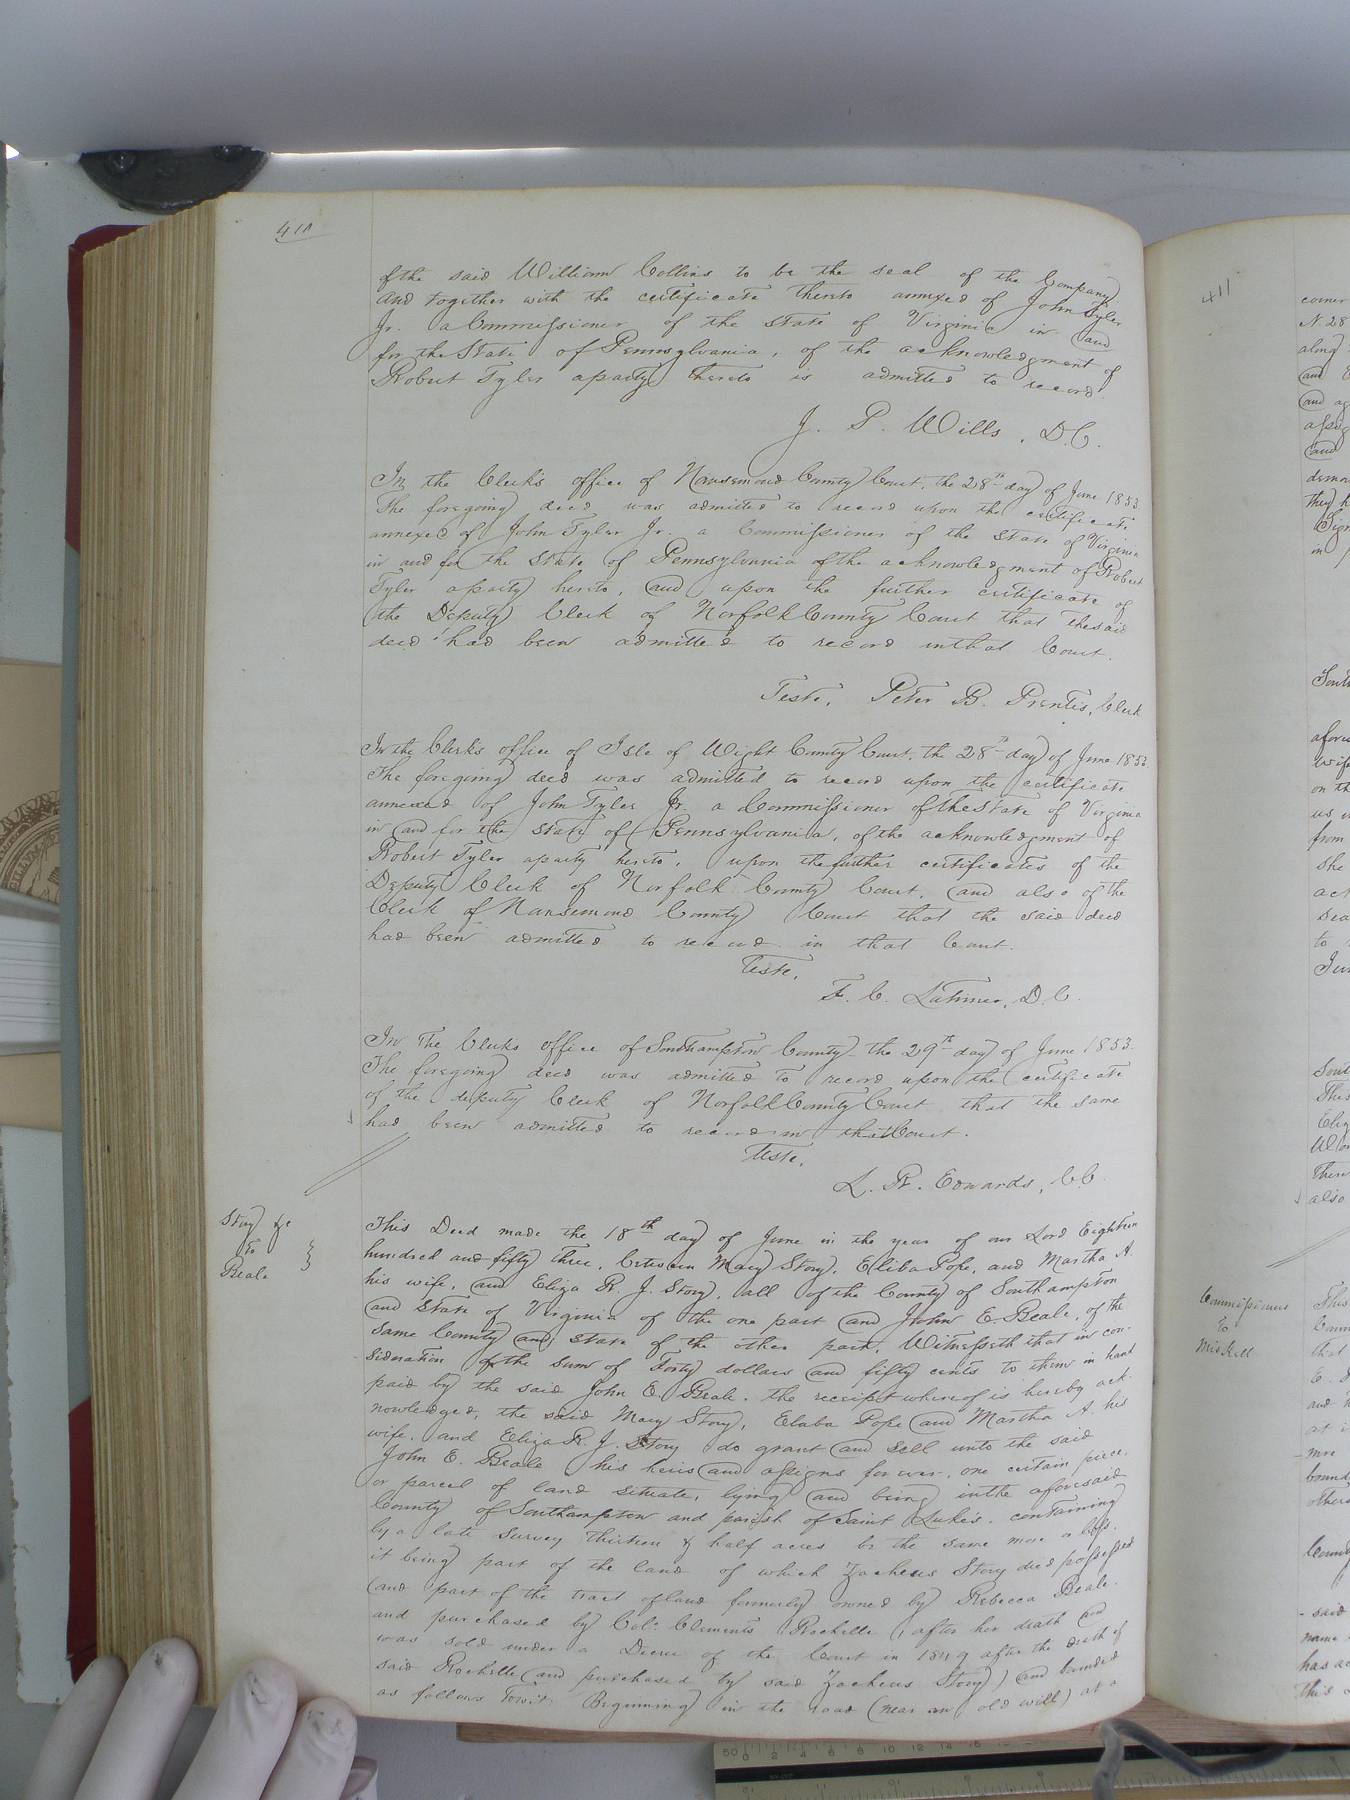 410
of the said William Collins to be the seal of the Company
and together with the certificate thereto annexed of John Tyler
Jr. a Commissioner of the State of Virginia in and
for the State of Pennsylvania, of the acknowledgment of
Robert Tyler a party thereto is admitted to record.
J. P. Wills, D.C.
In the Clerk's office of Nansemond County Court, the 28th day of June 1853
The foregoing deed was admitted to record upon the certificate
annexed of John Tyler Jr. a Commissioner of the State of Virginia
in and for the State of Pennsylvania of the acknowledgment of Robert
Tyler a party hereto, and upon the further certificate of
the Deputy Clerk of Norfolk County Court that the said
deed had been admitted to record in that Court.
Teste, Peter B. Prentis, Clerk
In the Clerk's office of Isle of Wight County Court, the 28th day of June 1853.
The foregoing deed was admitted to record upon the certificate
annexed of John Tyler Jr. a Commissioner of the State of Virginia
in and for the State of Pennsylvania, of the acknowledgment of
Robert Tyler a party hereto, upon the further certificates of the
Deputy Clerk of Norfolk County Court, and also of the
Clerk of Nansemond County Court that the said deed
had been admitted to record in that Court.
Teste,
F. C. Latimer, D.C.
In The Clerks office of Southampton County the 29th day of June 1853.
The foregoing deed was admitted to record upon the certificate
of the deputy Clerk of Norfolk County Court that the same
had been admitted to record in that Court.
Teste,
L. R. Edwards, C.C.
Story &c
To
Beale
This Deed made the 18th day of June in the year of our Lord Eighteen
hundred and fifty three, between Mary Story, Eliba Pope, and Martha A.
his wife, and Eliza R. J. Story, all of the County of Southampton
and State of Virginia of the one part and John E. Beale, of the
same County and State of the other part, Witnesseth that in con-
sideration of the sum of Forty dollars and fifty cents to them in hand
paid by the said John E. Beale, the receipt whereof is hereby ack-
nowledged, the said Mary Story, Elaba Pope and Martha A. his
wife, and Eliza R. J. Story do grant and sell unto the said
John E. Beale his heirs and assigns forever, one certain piece
or parcel of land situate, lying and being in the aforesaid
County of Southampton and parish of Saint Luke's, containing
by a late survey thirteen & half acres be the same more or less.
it being part of the land of which Zacheus Story died possessed
and part of the tract of land formerly owned by Rebecca Beale.
and purchased by Col. Clements Rochelle, after her death and
was sold under a Decree of the Court in 1849 after the death of
said Rochelle (and purchased by said Zacheus Story) and bounded
as follows Towit: Beginning in the road (near an old will) at a
411
corner
N. 28
along
and
and
Commissioners
To
Miskell